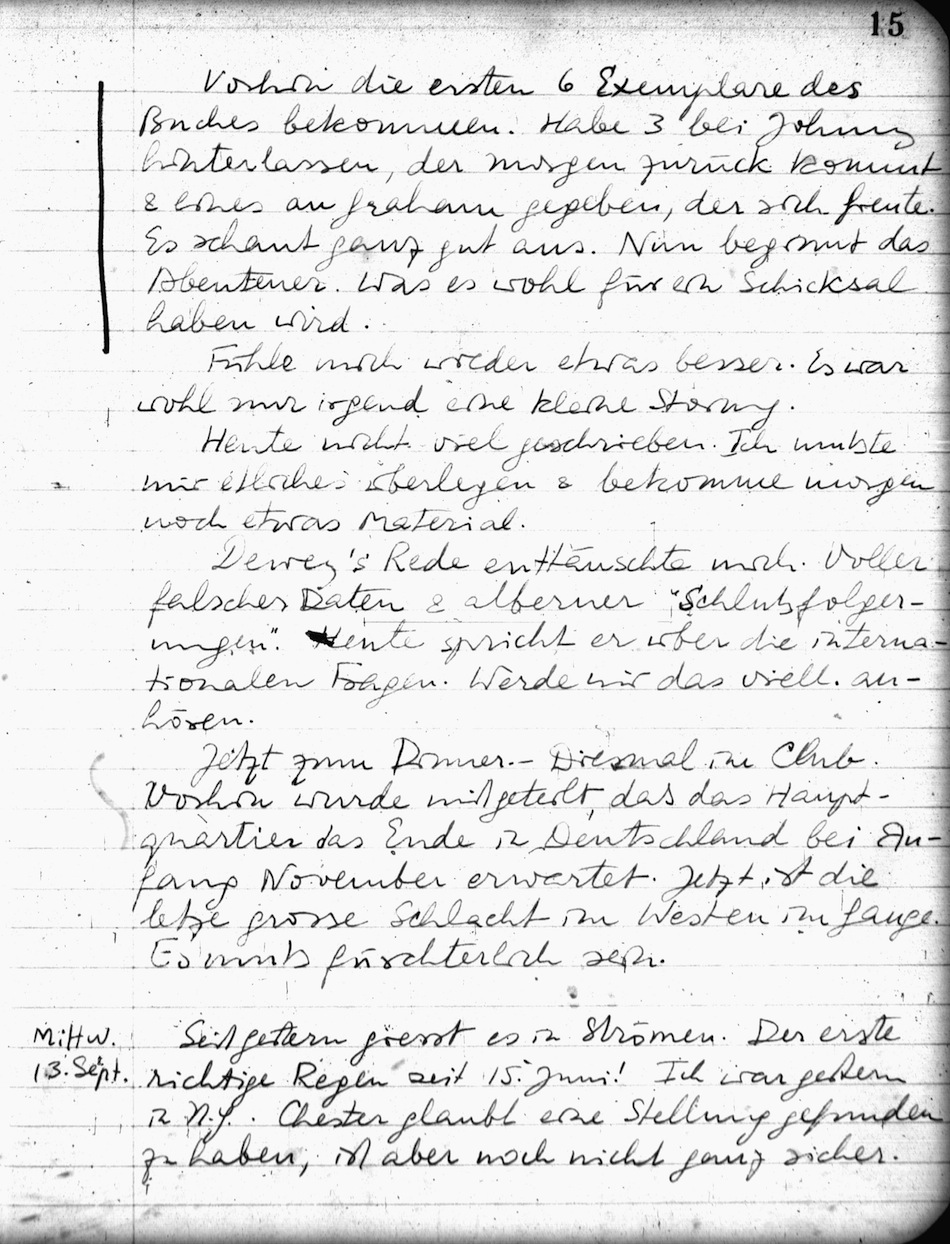 15
Vorhin die ersten 6 Exemplare des
Buches bekommen. Habe 3 bei Johnny
hinterlassen, der morgen zurück kommt
& eines an Graham gegeben, der sich freute.
Es schaut ganz gut aus. Nun beginnt das
Abenteuer. Was es wohl für ein Schicksal
haben wird.
Fühle mich wieder etwas besser. Es war
wohl nur irgend eine kleine Störung.
Heute nicht viel geschrieben. Ich mußte
mir etliches überlegen & bekomme morgen
noch etwas Material.
Dewey's Rede enttäuschte mich. Voller
falscher Daten & alberner "Schlußfolger-
ungen". Heute spricht er über die interna-
tionalen Fragen. Werde mir das viell. an-
hören.
Jetzt zum Dinner.- Diesmal im Club.
Vorhin wurde mitgeteilt, daß das Haupt-
quartier das Ende in Deutschland bei An-
fang November erwartet. Jetzt ist die
letze grosse Schlacht im Westen im Gange.
Es muß fürchterlich sein.
Mittw.
13. Sept.
Seit gestern giesst es in Strömen. Der erste
richtige Regen seit 15. Juni! Ich war gestern
in N.Y. Chester glaubt eine Stellung gefunden
zu haben, ist aber noch nicht ganz sicher.